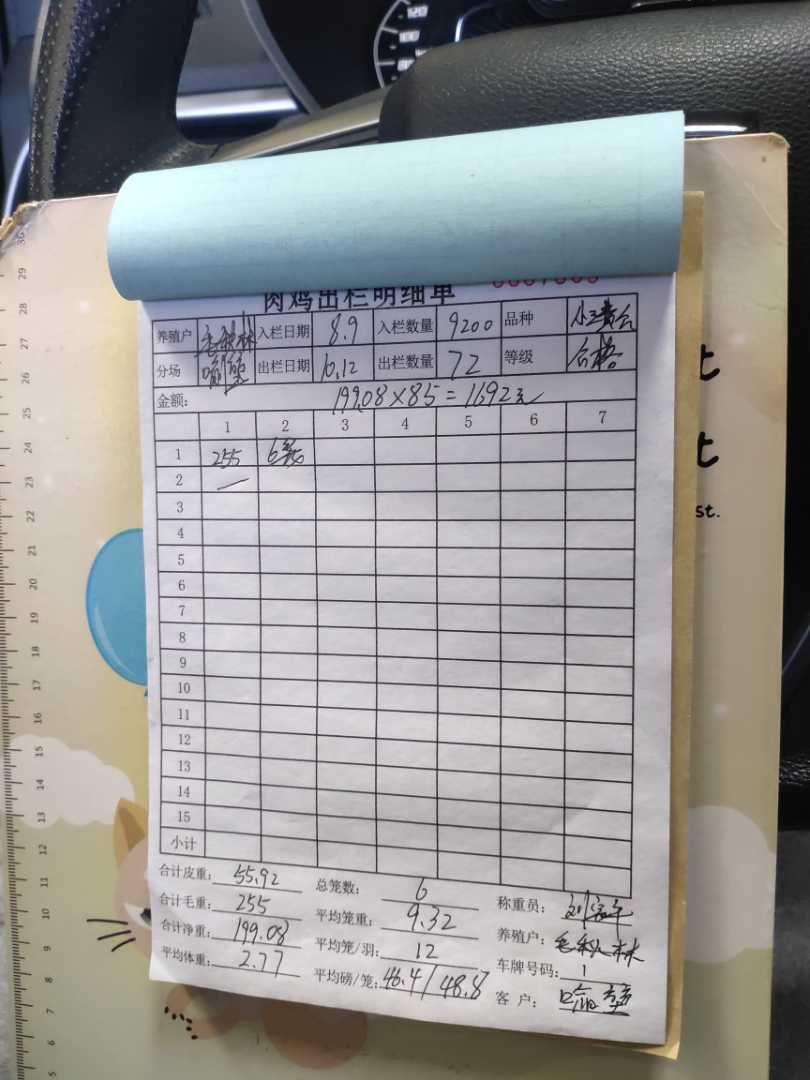 肉鸡出栏明细单
养殖户 入栏日期 8.9 入栏数量 9200 品种
分场 出栏日期 10.12 出栏数量 72 等级 合格
金额: 199.08×8.5=1692元
1 2 3 4 5 6 7
1 255 6笼
2 —
3
4
5
6
7
8
9
10
11
12
13
14
15
小计
合计皮重: 55.92 总笼数: 6 称重员:
合计毛重: 255 平均笼重: 9.32 养殖户:
合计净重: 199.08 平均笼/羽: 12 车牌号码: 1
平均体重: 2.77 平均磅/笼: 46.4/48.8 客户:
st.
30
29
28
27
26
25
24
23
22
21
20
19
18
17
16
15
14
13
12
11
10
9
8
7
6
5
120